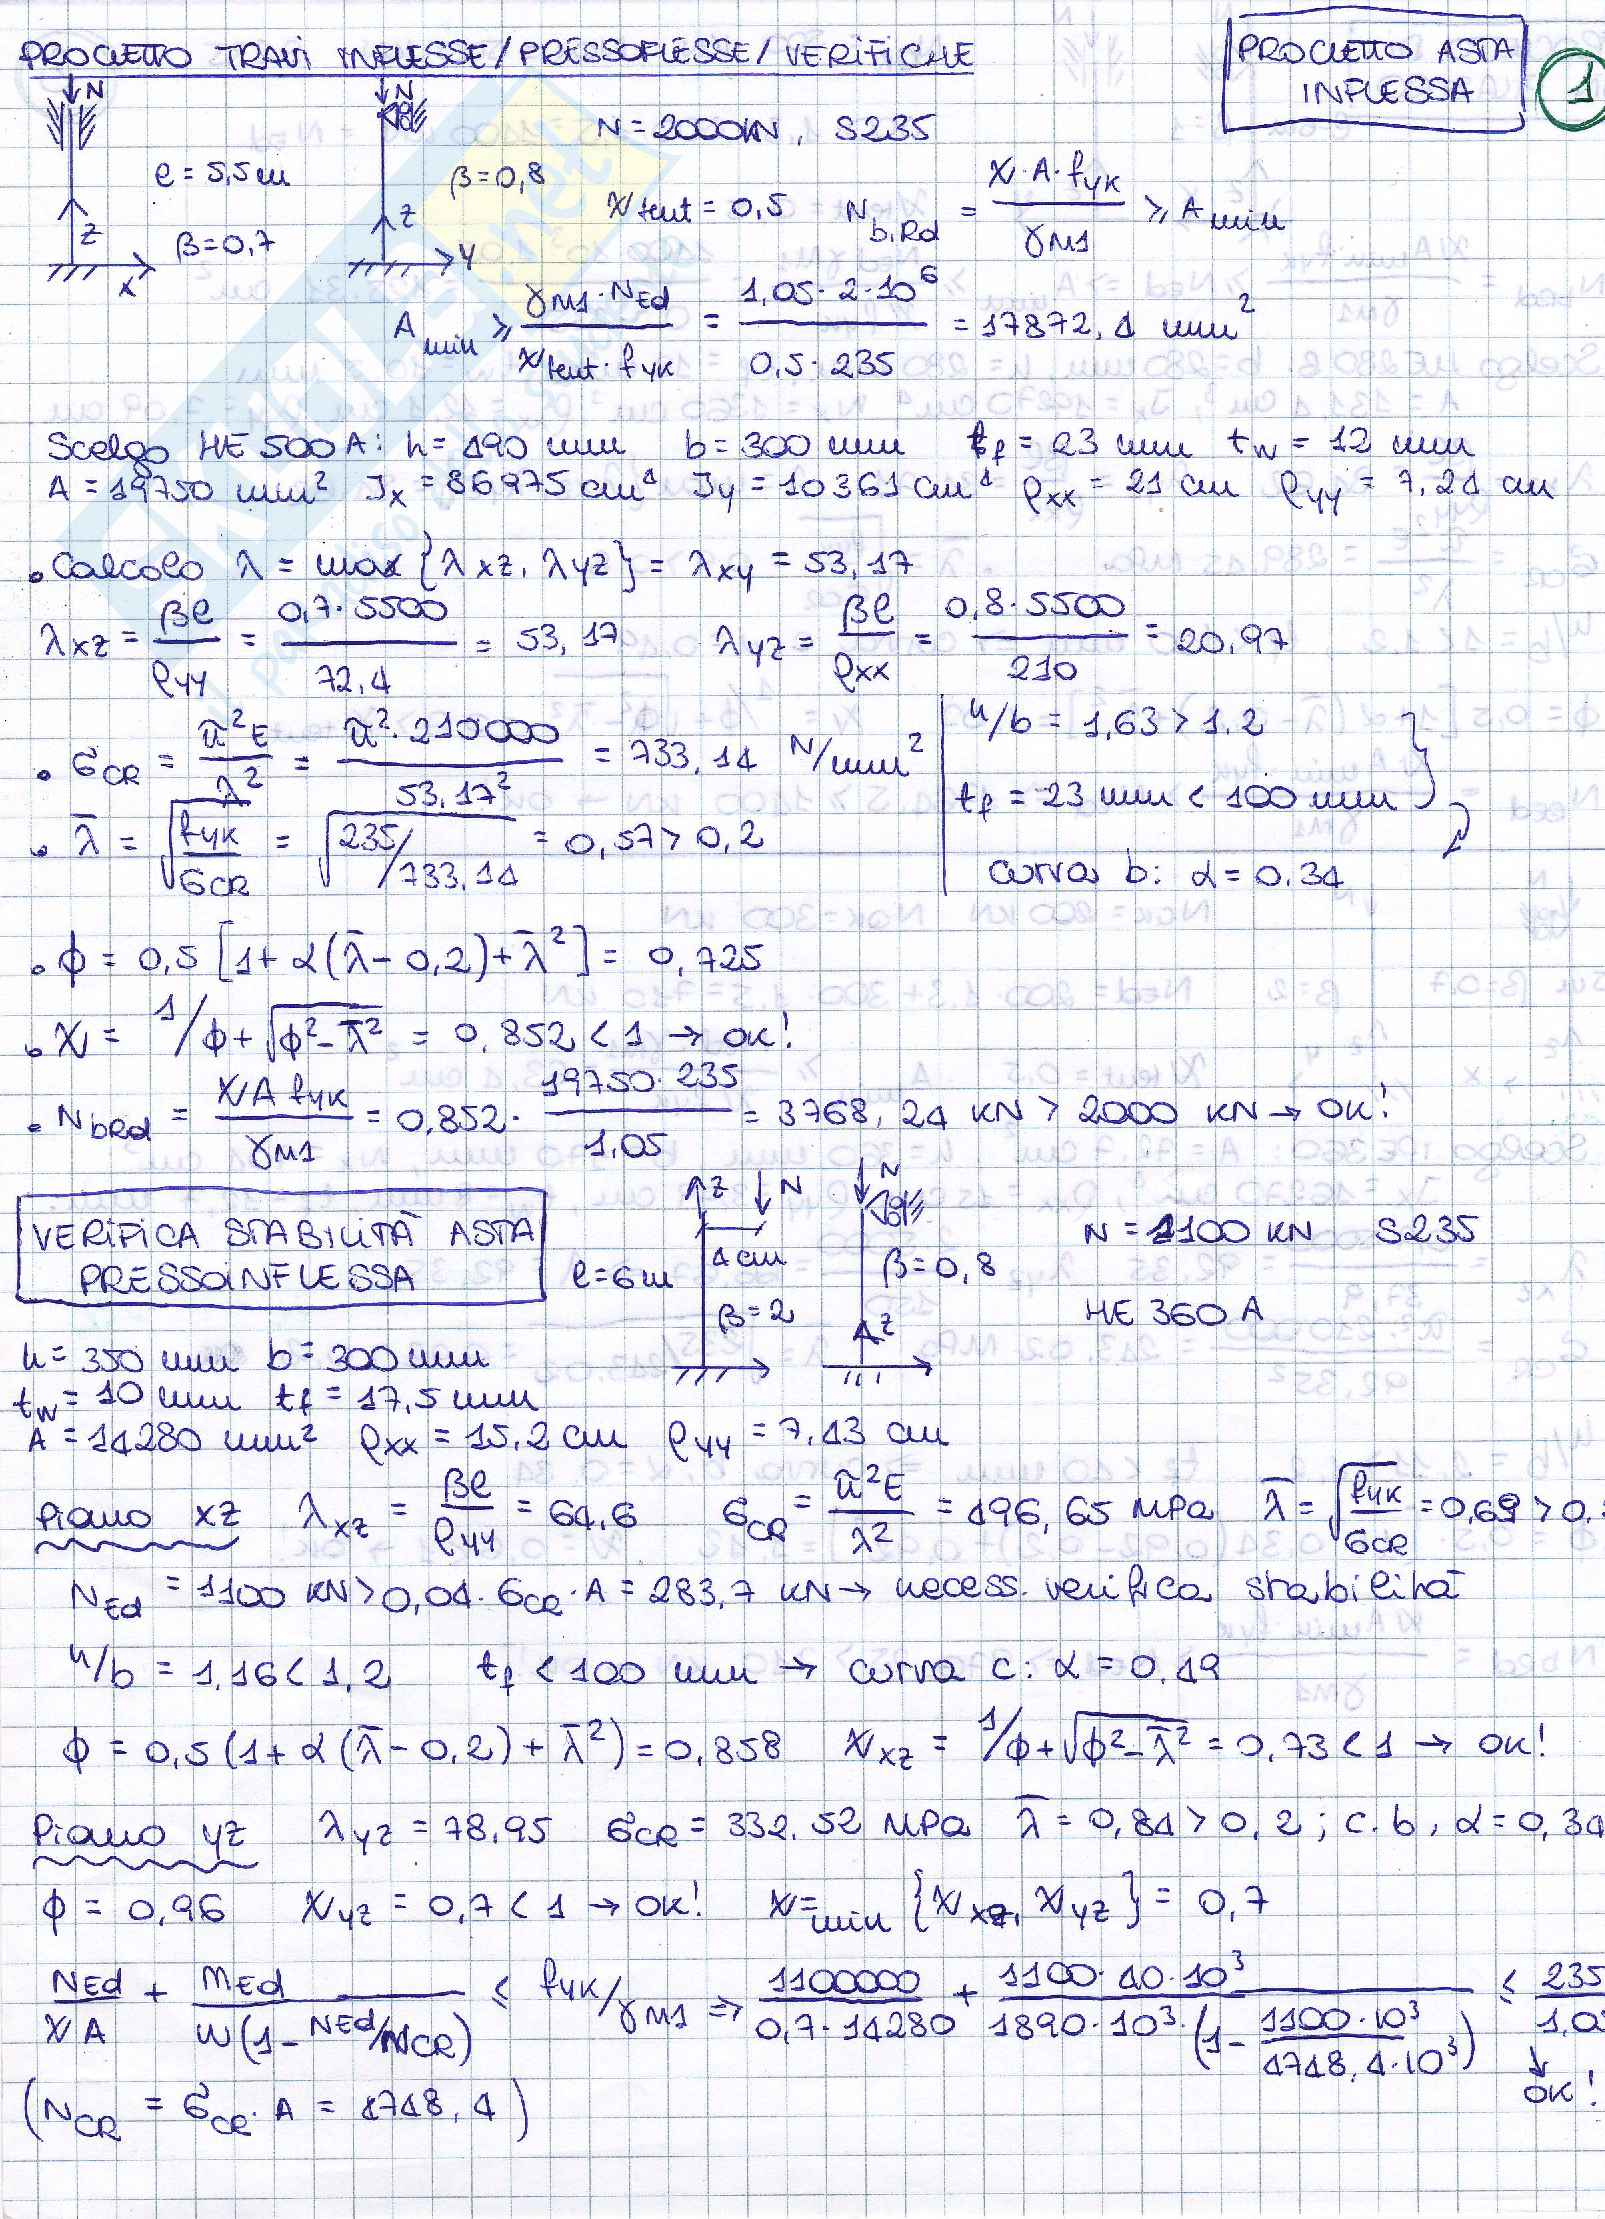 PROGETTO TRAVI INFLESSE/PRESSOFLESSE/VERIFICHE
PROGETTO ASTA INFLESSA
1
N N
l = 5,5 m β = 0,8 N = 2000 kN, S235
z x β = 0,7 z y
χtent = 0,5 Nb,Rd = χ·A·fyk / γM1 ≥ Amin
Amin ≥ γM1·NEd / χtent·fyk = 1,05·2·10^6 / 0,5·235 = 17872,4 mm²
Scelgo HE 500 A: h = 490 mm b = 300 mm tf = 23 mm tw = 12 mm
A = 19750 mm² Jx = 86975 cm⁴ Jy = 10361 cm⁴ ρxx = 21 cm ρyy = 7,24 cm
• Calcolo λ = max {λxz, λyz} = λxy = 53,17
λxz = βl / ρyy = 0,7·5500 / 72,4 = 53,17 λyz = βl / ρxx = 0,8·5500 / 210 = 20,97
• σCR = π²E / λ² = π²·210000 / 53,17² = 733,14 N/mm²
h/b = 1,63 > 1,2
tf = 23 mm < 100 mm
• λ̄ = √(fyk / σCR) = √(235/733,14) = 0,57 > 0,2
curva b: α = 0,34
• ϕ = 0,5 [1 + α(λ̄ - 0,2) + λ̄²] = 0,725
• χ = 1/ϕ + √ϕ² - λ̄² = 0,852 < 1 → OK!
• NbRd = χ A fyk / γM1 = 0,852 · 19750·235 / 1,05 = 3768,24 kN > 2000 kN → OK!
VERIFICA STABILITÀ ASTA PRESSOINFLESSA
z N N
4 cm l = 6 m β = 0,8 β = 2 z
N = 1100 kN S235
HE 360 A
h = 350 mm b = 300 mm
tw = 10 mm tf = 17,5 mm
A = 14280 mm² ρxx = 15,2 cm ρyy = 7,43 cm
Piano xz λxz = βl / ρyy = 64,6 σCR = π²E / λ² = 496,65 MPa λ̄ = √(fyk / σCR) = 0,69 > 0,
NEd = 1100 kN > 0,04·σCR·A = 283,7 kN → necess. verifica stabilità
h/b = 1,16 < 1,2 tf < 100 mm → curva c: α = 0,49
ϕ = 0,5 (1 + α (λ̄ - 0,2) + λ̄²) = 0,858 χxz = 1/ϕ + √ϕ² - λ̄² = 0,73 < 1 → OK!
Piano yz λyz = 78,95 σCR = 332,52 MPa λ̄ = 0,84 > 0,2; c. b, α = 0,34
ϕ = 0,96 χyz = 0,7 < 1 → OK! χ = min {χxz, χyz} = 0,7
NEd / χA + MEd / W(1 - NEd/NCR) ≤ fyk/γM1 ⇒ 1100000 / 0,7·14280 + 1100·40·10³ / 1890·10³·(1 - 1100·10³ / 4748,4·10³) ≤ 235 / 1,0
OK!
(NCR = σCR·A = 4748,4)